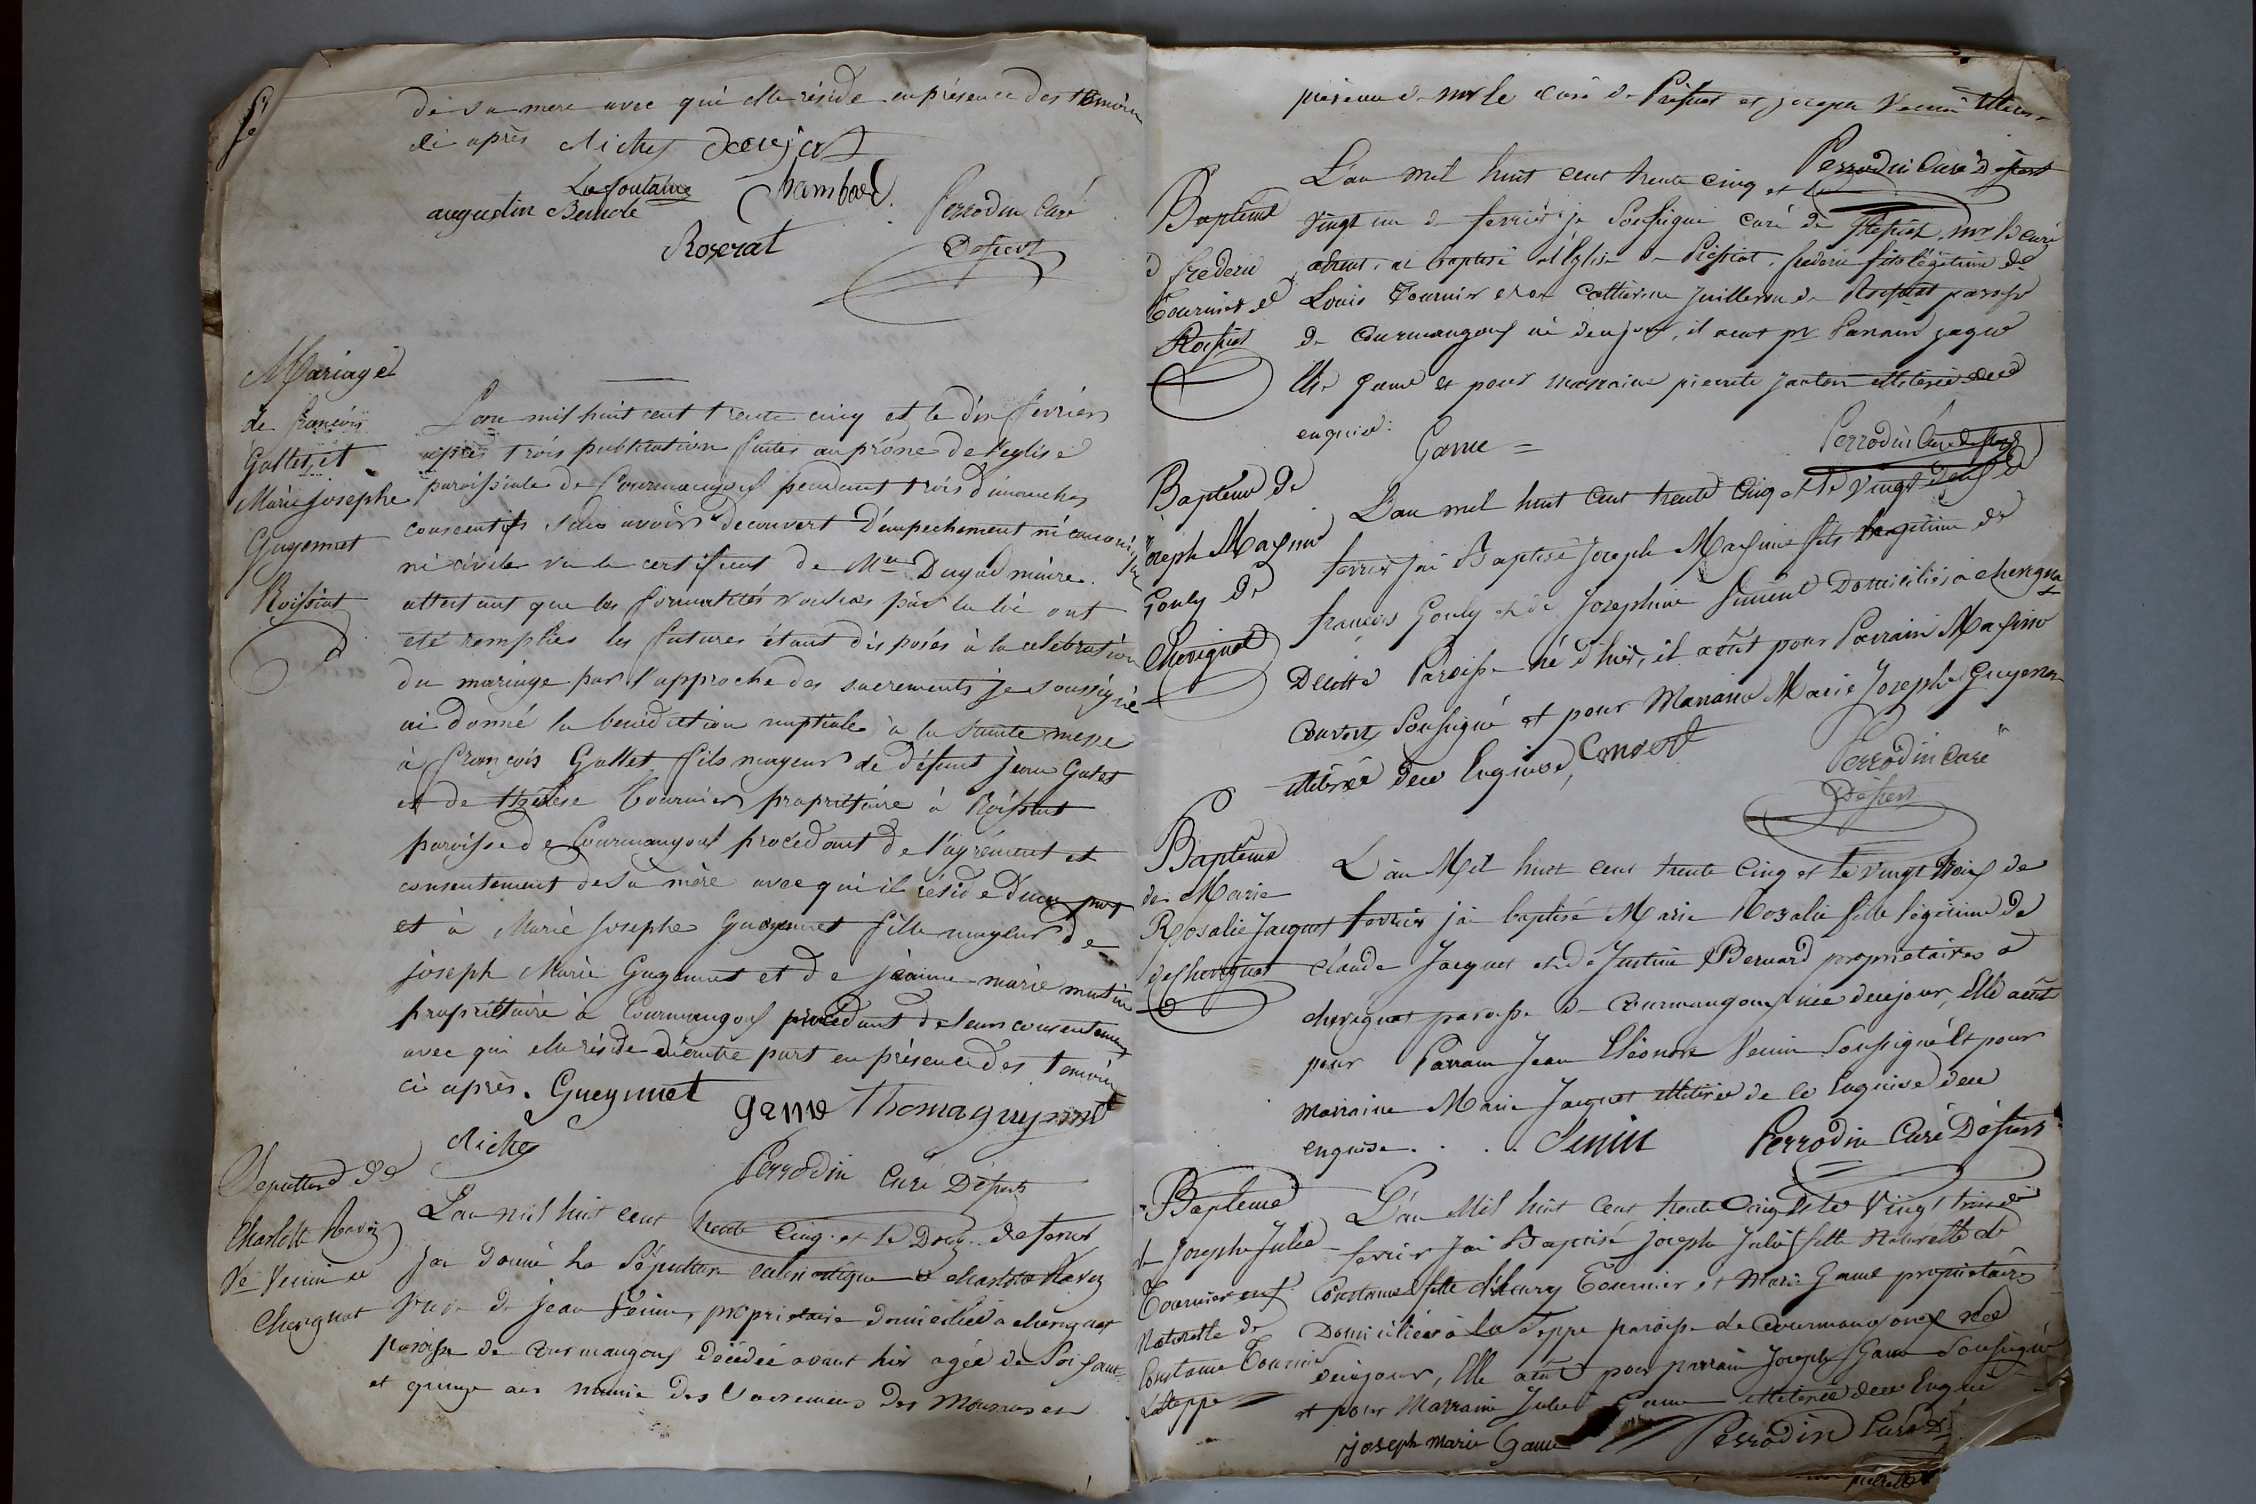 de sa mere avec qui elle réside en présence des témoins
ci après Michel Daujat
La fontaine
augustin Chambard
Perrodin Curé
Roserat
Mariage
de françois
Gallet et
Marie Josephe
Guyennet
Roissiat
L'an mil huit cent trente cinq et le dix fevrier
après trois publication faites au prône de l'eglise
paroissiale de Courmangoux pendant trois dimanches
consecutifs sans avoir decouvert d'empechement ni canonique
ni civile vu le certificat de Mr Duga maire
attestant que les formalités voulues par la loi ont
été remplies les futures étant disposés à la celebration
du mariage par l'approche des sacrements je soussigné
ai donné la benediction nuptiale à la sainte messe
à françois Gallet fils mayeur de défunt Jean Galet
et de thérèse Tournier propriétaire à Roissiat
paroisse de Courmangoux procédant de l'agrément et
consentement de sa mère avec qui il réside d'une part
et à Marie Josephe Guyennet fille mayeur de
joseph Marie Guyennet et de jeanne marie
propriétaire à Courmangoux procedant de leurs consentement
avec qui elle réside d'autre part en présence des temoins
ci après. Gueynnet
Game Thoma gueynnet
Michel
Perrodin Curé
Sepulture de
Charlotte Ravez
Ve Venin de
Chevignat
L'an mil huit cent trente Cinq et le Douze de fevrier
j'ai donné la Sépulture eclesiastique a charlotte Ravez
Veuve de Jean Venin, propriétaire domiciliée a chevignat
paroisse de Courmangoux décédée avant hier agée de Soisante
et quinze ans munie des Sacremens des Mourans en
présence de mr le curé de Préssiat et joseph Venin
Perrodin Curé
Baptême
d frederic
Tournier de
Roissiat
L'an mil huit cent trente cinq et le
vingt un de fevrier je Soussigné curé de Pressiat mr le curé
absent, ai baptisé a l'Eglise de Préssiat, frederic fils légitime de
Louis Tournier et de Catherine Juilleron de Roissiat paroisse
de Courmangoux né de ce jour, il a eut pr Parrain jaque
Game et pour marraine pierrette janton illetérée de ce
enquise:
Game =
Perrodin Curé
Baptême de
Joseph Maximin
Gouly de
Chevignat
L'an mil huit cent trente Cinq et le vingt Deux de
fevrier j'ai Baptisé Joseph Maximin fils légitime de
françois Gouly et de Josephine Domiciliés a chevignat
Paroisse né d'hier, il a eut pour Parrain Maximin
Convert Soussigné et pour Marraine Marie Josephe Guyennet
illitérée de ce Enquise, Convert
Perrodin Curé
Baptême
de Marie
Rosalie Jacquet
de Chevignat
L'an Mil huit cent trente Cinq et le Vingt trois de
fevrier j'ai baptisé Marie Rosalie fille légitime de
claude Jacquet et de Justine Bernard propriétaires a
chevignat paroisse de Courmangoux née de ce jour, Elle a eut
pour Parrain Jean Eléonore Venin Soussigné Et pour
marraine Marie Jacquet illitérée de ce Enquise de ce
enquise . . . Venin
Perrodin Curé
Baptême
de Josephe Julie
Tournier enf.
Naturelle de
Constance Tournier
La teppe
L'an Mil huit Cent trente Cinq Et le Vingt trois de
fevrier j'ai Baptisé Josephe Julie fille Naturelle de
Constance fille d'henry Tournier et Marie Game propriétaires
Domiciliés à La teppe paroisse de Courmangoux née
de ce jour, Elle a eut pour parrain Joseph Game Soussigné
et pour Marraine Julie Game illitérée de ce Enquise
joseph marie Game
Perrodin Curé